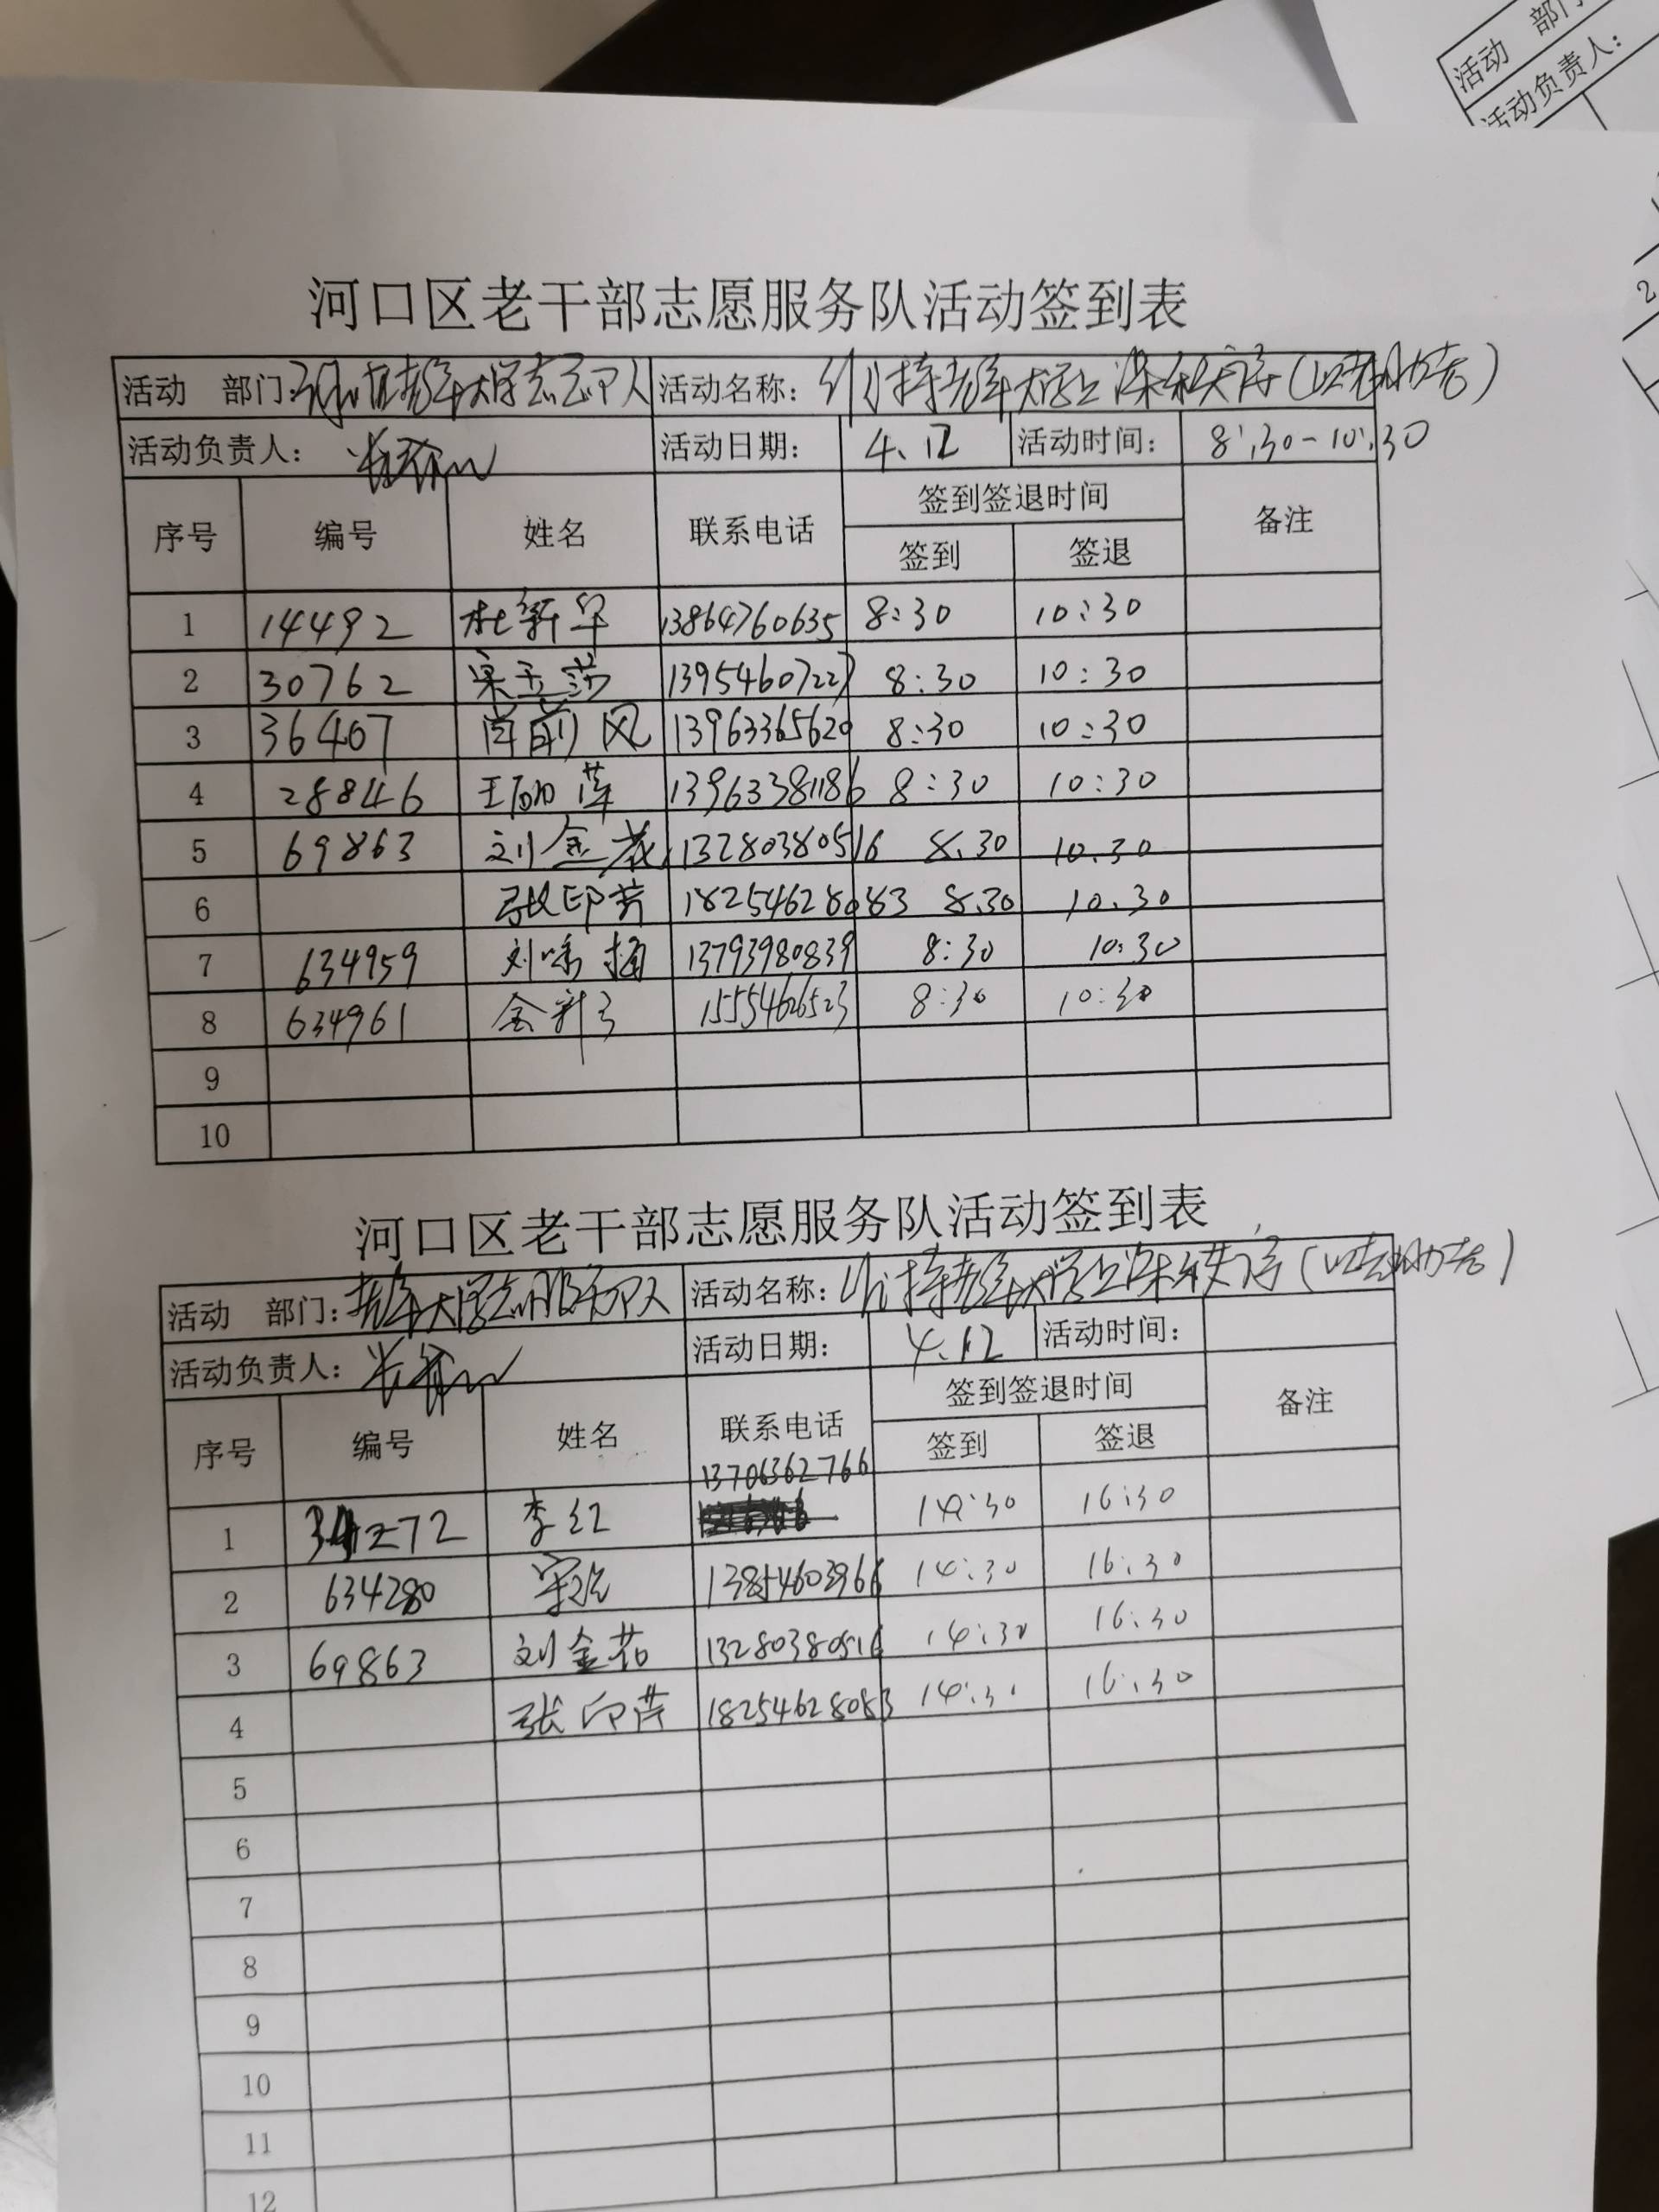 活动 部门
活动负责人：
2
河口区老干部志愿服务队活动签到表
活动 部门: 老年大学志愿 活动名称: 维持老年大学上课秩序(以老助老)
活动负责人: 活动日期: 4.12 活动时间: 8:30-10:30
序号 编号 姓名 联系电话 签到签退时间 备注
签到 签退
1 14492 杜新华 13864760635 8:30 10:30
2 30762 宋玉萍 13954607227 8:30 10:30
3 36407 前风 13963365620 8:30 10:30
4 28846 王丽萍 13963381186 8:30 10:30
5 69863 刘金花 13280380516 8.30 10.30
6 张印芳 18254628083 8.30 10.30
7 634959 刘 13793980839 8:30 10:30
8 634961 金新 15554626523 8:30 10:30
9
10
河口区老干部志愿服务队活动签到表
活动 部门: 老年大学志愿服务队 活动名称: 维持老年大学上课秩序(以老助老)
活动负责人: 活动日期: 4.12 活动时间:
序号 编号 姓名 联系电话 签到签退时间 备注
签到 签退
13706362766
1 34272 李红 14:30 16:30
2 634280 宋 13854603966 14:30 16:30
3 69863 刘金花 13280380516 14:30 16:30
4 张印芳 18254628083 14:30 16:30
5
6
7
8
9
10
11
12